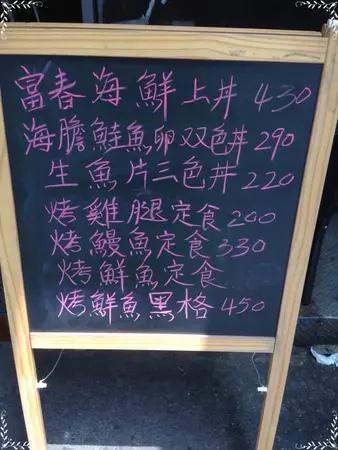 富春海鮮上丼 430
海膽鮭魚卵双色丼 290
生魚片三色丼 220
烤雞腿定食 200
烤鰻魚定食 330
烤鮮魚定食
烤鮮魚黑格 450